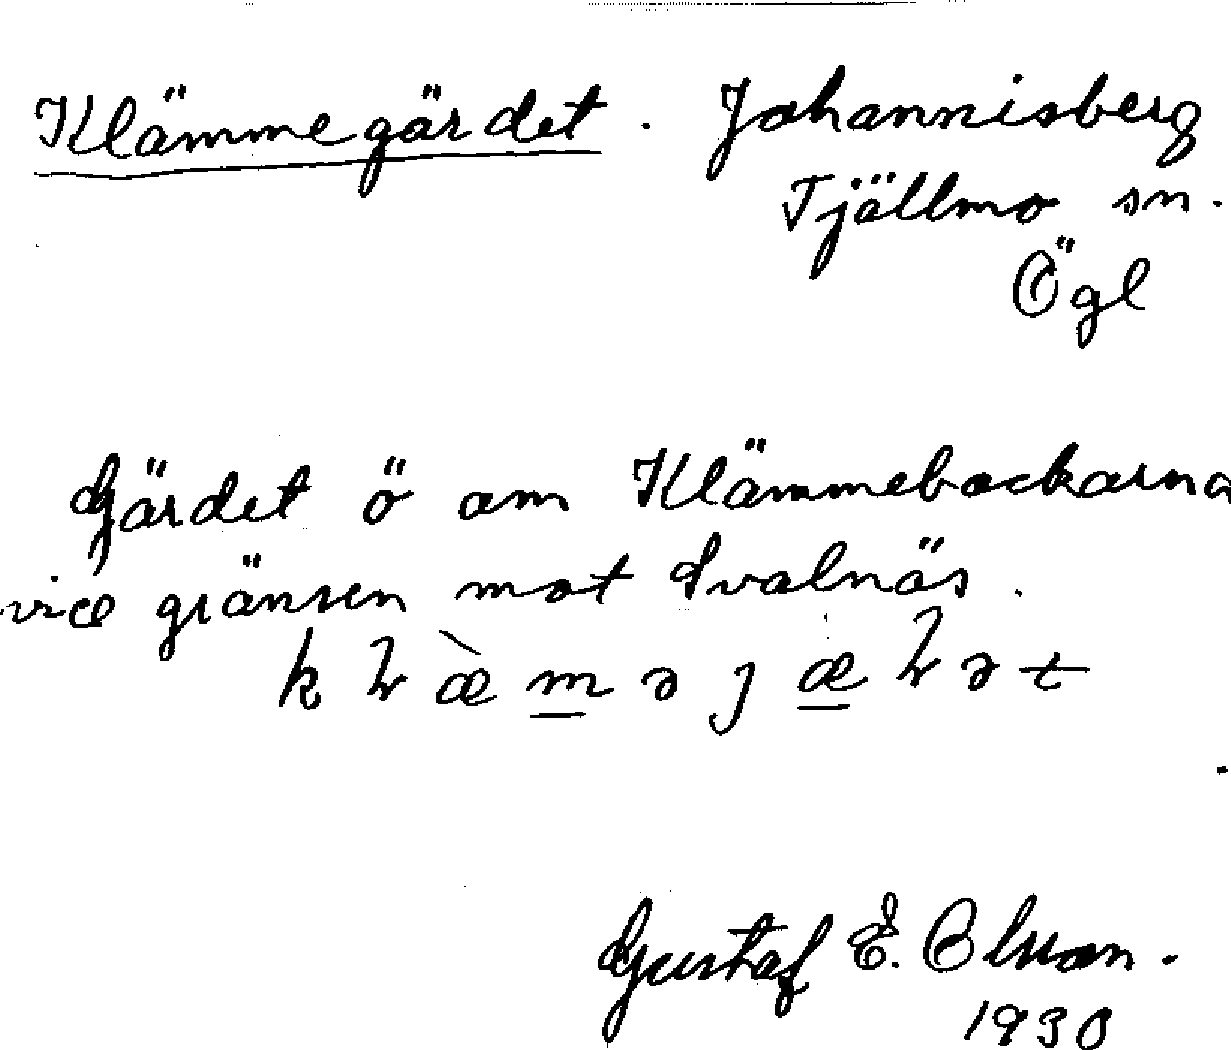 Klämmegärdet. Johannisberg
Tjällmo sn.
Ögl
Gärdet ö om Klämmebackarna
vid gränsen mot Svalnäs.
Gustaf E. Olsson.
1930